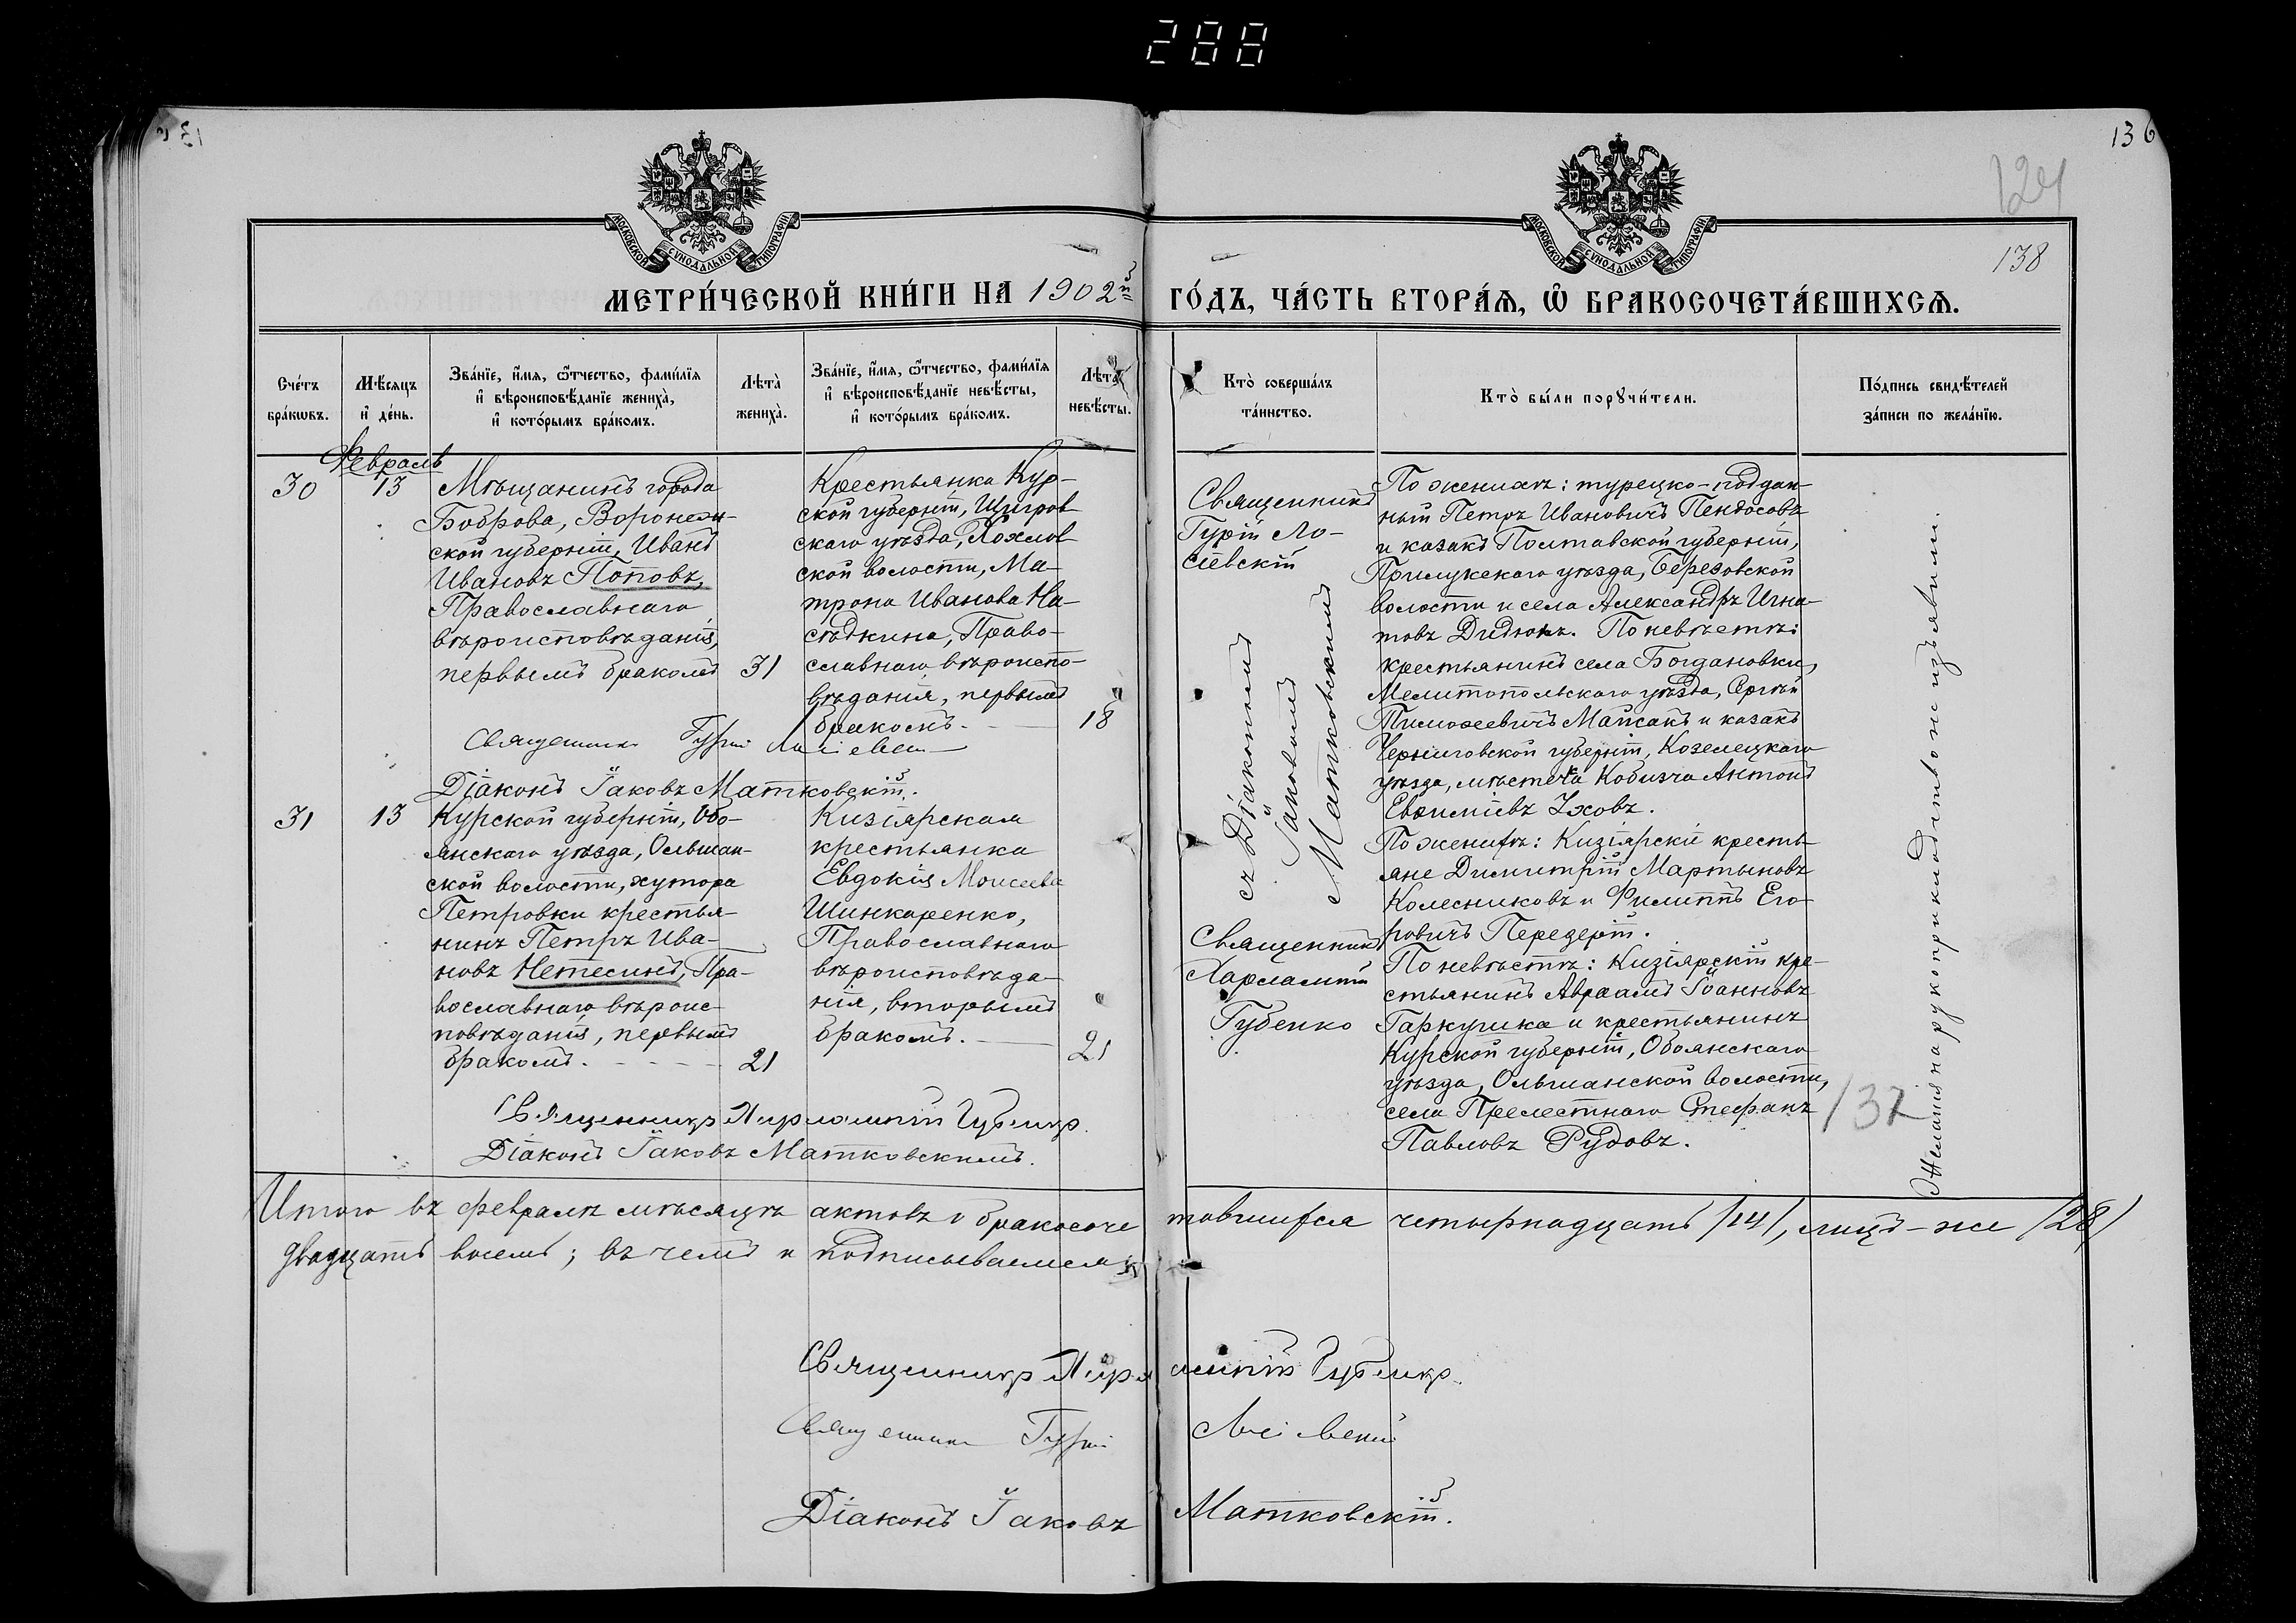 288
136
124
138
МОСКОВСКОЙ СѴНОДАЛЬНОЙ ТИПОГРАФІИ
МОСКОВСКОЙ СѴНОДАЛЬНОЙ ТИПОГРАФІИ
МЕТРИ́ЧЕСКОЙ КНИ́ГИ НА 1902й ГО́ДЪ, ЧА́СТЬ ВТОРА́Ѧ, Ѡ҆ БРАКОСОЧЕТА́ВШИХСѦ.
Сче́тъ
бра́кѡвъ.
Мѣ́сяцъ
и҆ де́нь.
Зва́нїе, и҆́мя, ѻ҆́тчество, фами́лїя
и҆ вѣроисповѣ́данїе жениха̀,
и҆ кото́рымъ бра́комъ.
Лѣта̀
жениха̀.
Зва́нїе, и҆́мя, ѻ҆́тчество, фами́лїя
и҆ вѣроисповѣ́данїе невѣ́сты,
и҆ кото́рымъ бра́комъ.
Лѣта̀
невѣ́сты.
Кто̀ соверша́лъ
та́инство.
Кто̀ бы́ли порꙋчи́тели.
По́дпись свидѣ́телей
за́писи по жела́нїю.
Февраль
30
13
Мѣщанинъ города
Боброва, Воронеж-
ской губерніи, Иванъ
Ивановъ Поповъ,
Православнаго
вѣроисповѣданія,
первымъ бракомъ
31
Крестьянка Кур-
ской губерніи, Щигров
скаго уѣзда, Хохлов
ской волости, Ма-
трона Иванова На-
сѣдкина, Право-
славнаго вѣроиспо-
вѣданія, первымъ
бракомъ.
18
Священникъ Гурій Лосіевскій
Діаконъ Іаковъ Матковскій.
Священникъ
Гурій Ло-
сіевскій
съ Діакономъ
Іаковомъ
Матковскимъ
По женихѣ: турецко-поддан-
ный Петръ Ивановичъ Пендосовъ
и казакъ Полтавской губерніи,
Прилукскаго уѣзда, Березовской
волости и села Александръ Игна-
товъ Дидюкъ. По невѣстѣ:
крестьянинъ села Богдановки,
Мелитопольскаго уѣзда, Сергѣй
Тимофеевичъ Майсакъ и казакъ
Черниговской губерніи, Козелецкаго
уѣзда, мѣстечка Кобизча Антонъ
Евѳиміевъ Уховъ.
31
13
Курской губерніи, Обо-
янскаго уѣзда, Ольшан-
ской волости, хутора
Петровки крестья-
нинъ Петръ Ива-
новъ Нетесинъ, Пра-
вославнаго вѣроис-
повѣданія, первымъ
бракомъ.
21
Кизіярская
крестьянка
Евдокія Моисеева
Шинкаренко,
Православнаго
вѣроисповѣда-
нія, вторымъ
бракомъ.
21
Священникъ Харлампій Губенко.
Діаконъ Іаковъ Матковскимъ.
Священникъ
Харлампій
Губенко
По женихѣ: Кизіярскіе кресть-
яне Димитрій Мартыновъ
Колесниковъ и Филиппъ Его-
ровичъ Передерій.
По невѣстѣ: Кизіярскій кре-
стьянинъ Авраамъ Іоанновъ
Гаркушка и крестьянинъ
Курской губерніи, Обоянскаго
уѣзда, Ольшанской волости,
села Прелестнаго Стефанъ
Павловъ Рудовъ.
Желанія на рукоприкладство не изъявили.
137
Итого въ февралѣ мѣсяцѣ актовъ о бракосоче тавшихся четырнадцать /14/, лицъ-же /28/
двадцать восемь; въ чемъ и подписываемся:
Священникъ Харлампій Губенко.
Священникъ Гурій Лосіевскій
Діаконъ Іаковъ Матковскій.